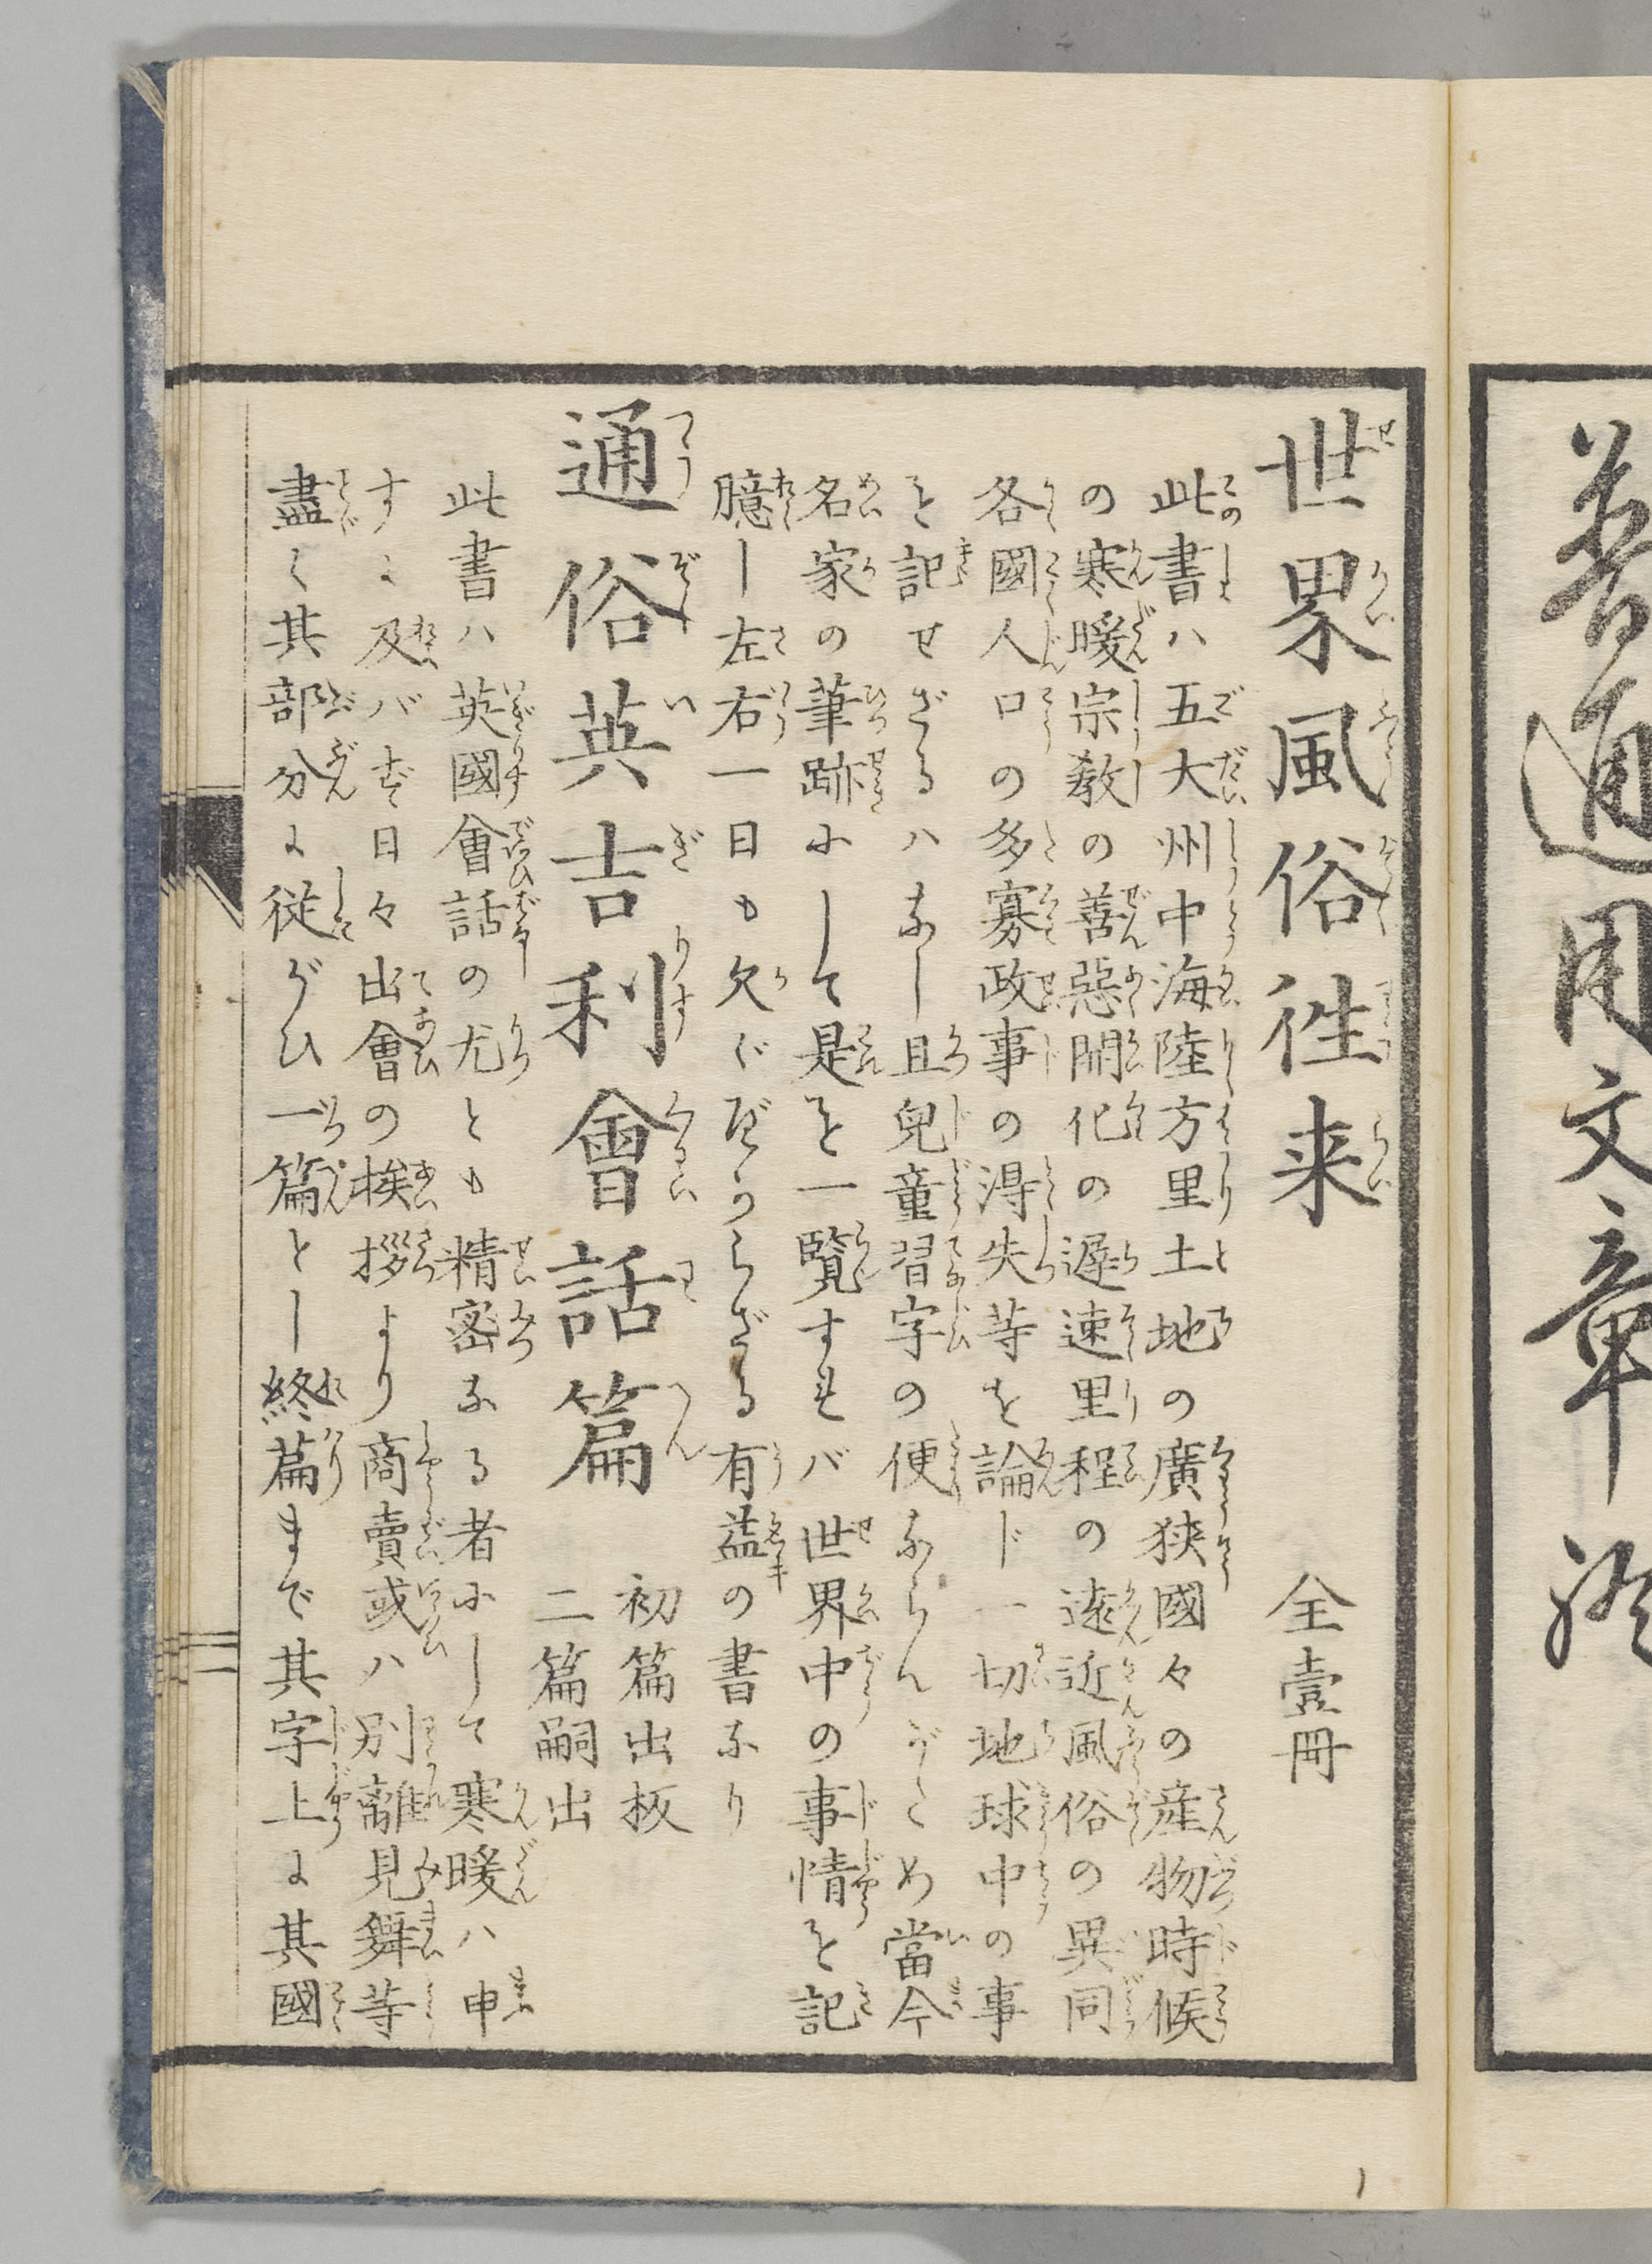 普通用文章終
世界風俗往来 全壹冊
此書ハ五大州中海陸方里土地の廣狭國々の産物時候
の寒暖宗教の善惡開化の遲速里程の遠近風俗の異同
各國人口の多寡政事の得失等を論ド一切地球中の事
を記せざるハなし且兒童習字の便ならんがため當今
名家の筆跡にして是を一覧すれバ世界中の事情を記
臆し左右一日も欠くべからざる有益の書なり
通俗英吉利會話篇
初篇出板
二篇嗣出
此書ハ英國會話の尤とも精密なる者にして寒暖ハ申
すに及バず日々出會の挨拶より商賣或ハ別離見舞等
盡く其部分に従がひ一篇とし終篇まで其字上に其國